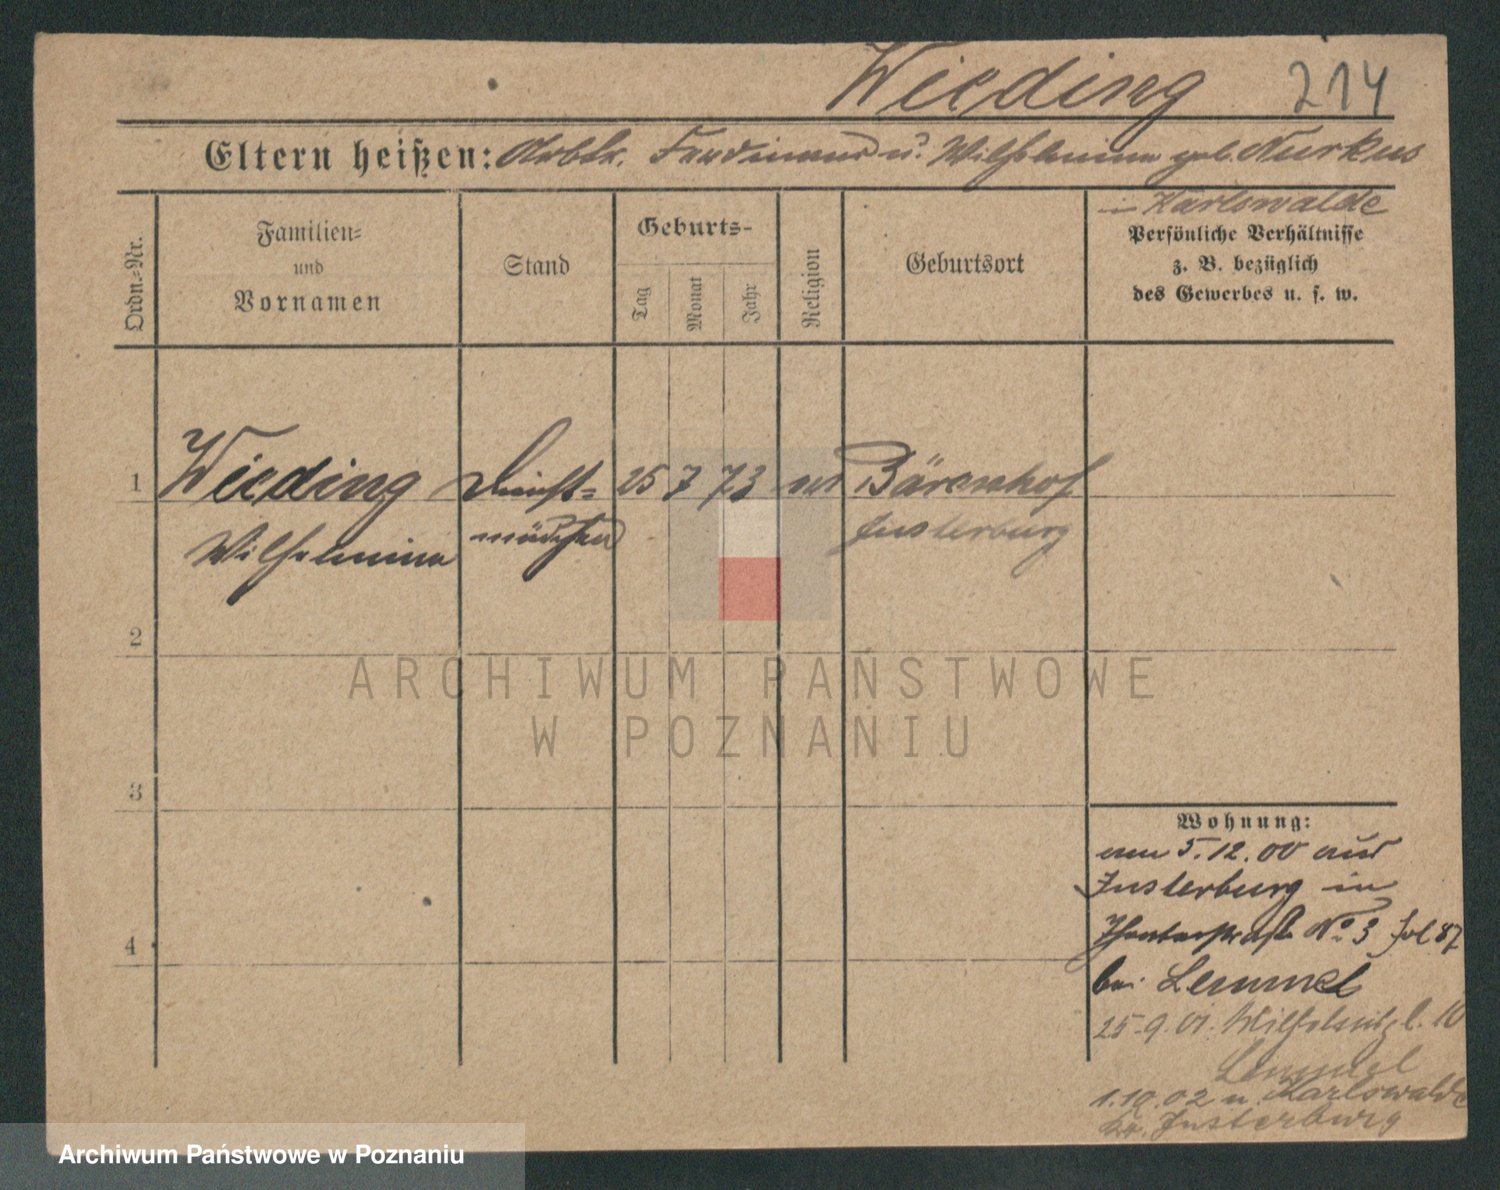 Wieding 214
Eltern heißen: Arbtr. Ferdinand u. Wilhelmine geb. Nurkus
in Karlswalde
Ordn.-Nr.
Familien-
und
Vornamen
Stand
Geburts-
Tag
Monat
Jahr
Religion
Geburtsort
Persönliche Verhältnisse
z. B. bezüglich
des Gewerbes u. s. w.
1 Wieding Dienst= 25 7 73 ev Bärenhof
Wilhelmine mädchen Insterburg
2
3
4
Wohnung:
am 5.12.00 aus
Insterburg in
Theaterstraße No 3 fol 87
bei Lemmel
25.9.01. Wilhelmstr. 10
Lemmel
1.10.02 n. Karlswalde
Kr. Insterburg
ARCHIWUM PAŃSTWOWE
W POZNANIU
Archiwum Państwowe w Poznaniu